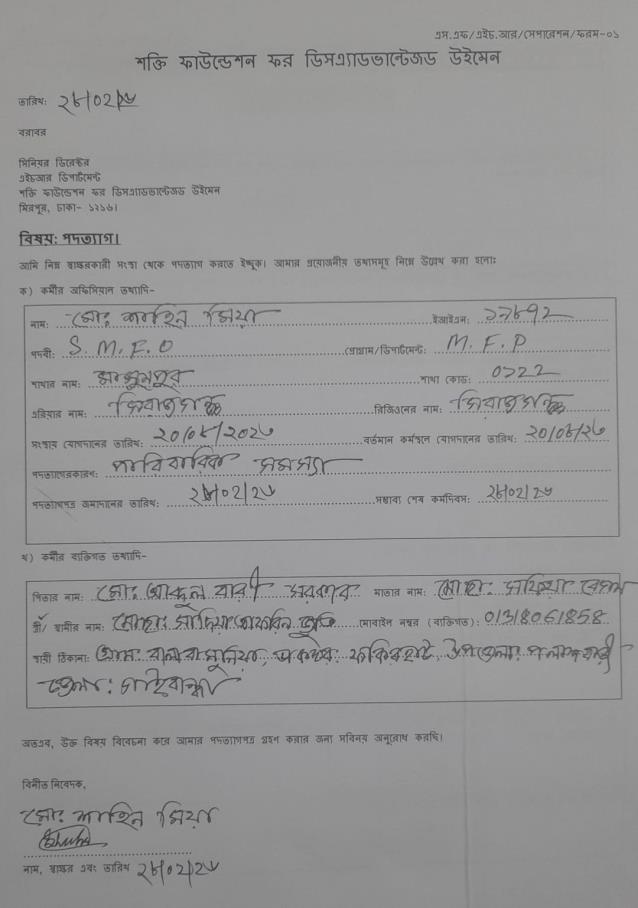 এস.এফ/এইচ.আর/সেপারেশন/ফরম-০১
শক্তি ফাউন্ডেশন ফর ডিসএ্যাডভান্টেজড উইমেন
তারিখ: ২৮/০২/২৬
বরাবর
সিনিয়র ডিরেক্টর
এইচআর ডিপার্টমেন্ট
শক্তি ফাউন্ডেশন ফর ডিসএ্যাডভান্টেজড উইমেন
মিরপুর, ঢাকা- ১২১৬।
বিষয়: পদত্যাগ।
আমি নিম্ন স্বাক্ষরকারী সংস্থা থেকে পদত্যাগ করতে ইচ্ছুক। আমার প্রয়োজনীয় তথ্যসমূহ নিম্নে উল্লেখ করা হলো:
ক) কর্মীর অফিসিয়াল তথ্যাদি-
নাম: মো: শাহিন মিয়া ইআইএন: ১৭৮৭২
পদবী: S. M. F. O প্রোগ্রাম/ডিপার্টমেন্ট: M. F. P
শাখার নাম: শাখা কোড: ০১২২
এরিয়ার নাম: সিরাজগঞ্জ রিজিওনের নাম: সিরাজগঞ্জ
সংস্থায় যোগদানের তারিখ: ২০/০৮/২০২৩ বর্তমান কর্মস্থলে যোগদানের তারিখ: ২০/০৮/২৩
পদত্যাগেরকারণ: পারিবারিক সমস্যা
পদত্যাগপত্র জমাদানের তারিখ: ২৮/০২/২৬ সম্ভাব্য শেষ কর্মদিবস: ২৮/০২/২৬
খ) কর্মীর ব্যক্তিগত তথ্যাদি-
পিতার নাম: মো: আব্দুল বারী সরকার মাতার নাম: মোছা: সফিয়া বেগম
স্ত্রী/ স্বামীর নাম: মোছা: সাদিয়া আফরিন মোবাইল নম্বর (ব্যক্তিগত): 01318061858
স্থায়ী ঠিকানা: গ্রাম: ফকিরহাট, উপজেলা: পলাশবাড়ী
জেলা: গাইবান্ধা
অতএব, উক্ত বিষয় বিবেচনা করে আমার পদত্যাগপত্র গ্রহণ করার জন্য সবিনয় অনুরোধ করছি।
বিনীত নিবেদক,
মো: শাহিন মিয়া
নাম, স্বাক্ষর এবং তারিখ ২৮/০২/২৬